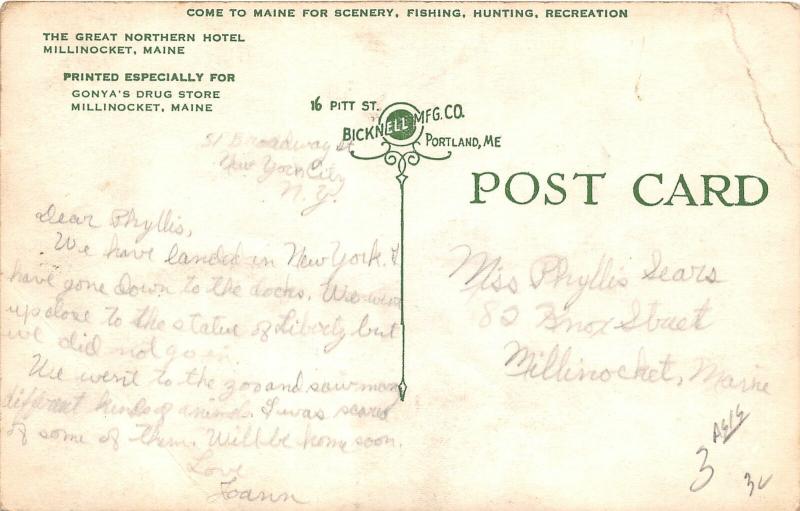 COME TO MAINE FOR SCENERY, FISHING, HUNTING, RECREATION
THE GREAT NORTHERN HOTEL
MILLINOCKET, MAINE
PRINTED ESPECIALLY FOR
GONYA'S DRUG STORE
MILLINOCKET, MAINE
16 PITT ST.
BICKNELL MFG. CO.
PORTLAND, ME
POST CARD
51 Broadway st
New York City
N.Y.
Dear Phyllis,
We have landed in New York. I
have gone down to the docks. We went
up close to the statue of Liberty but
we did not go in.
We went to the zoo and saw many
different kinds of animals. I was scared
of some of them. Will be home soon.
Love
Joann
Miss Phyllis Sears
80 Knox Street
Millinocket, Maine
3
3